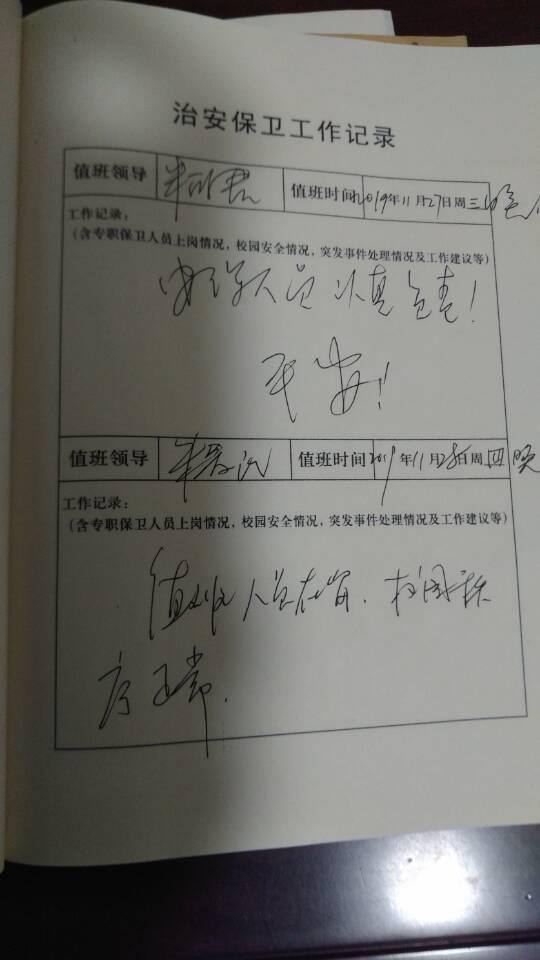 治安保卫工作记录
值班领导 值班时间2019年11月27日周三晚
工作记录:
(含专职保卫人员上岗情况,校园安全情况,突发事件处理情况及工作建议等)
人员认真负责!
平安!
值班领导 值班时间2019年11月28日周四晚
工作记录:
(含专职保卫人员上岗情况,校园安全情况,突发事件处理情况及工作建议等)
值班人员在岗.校园秩
序正常.